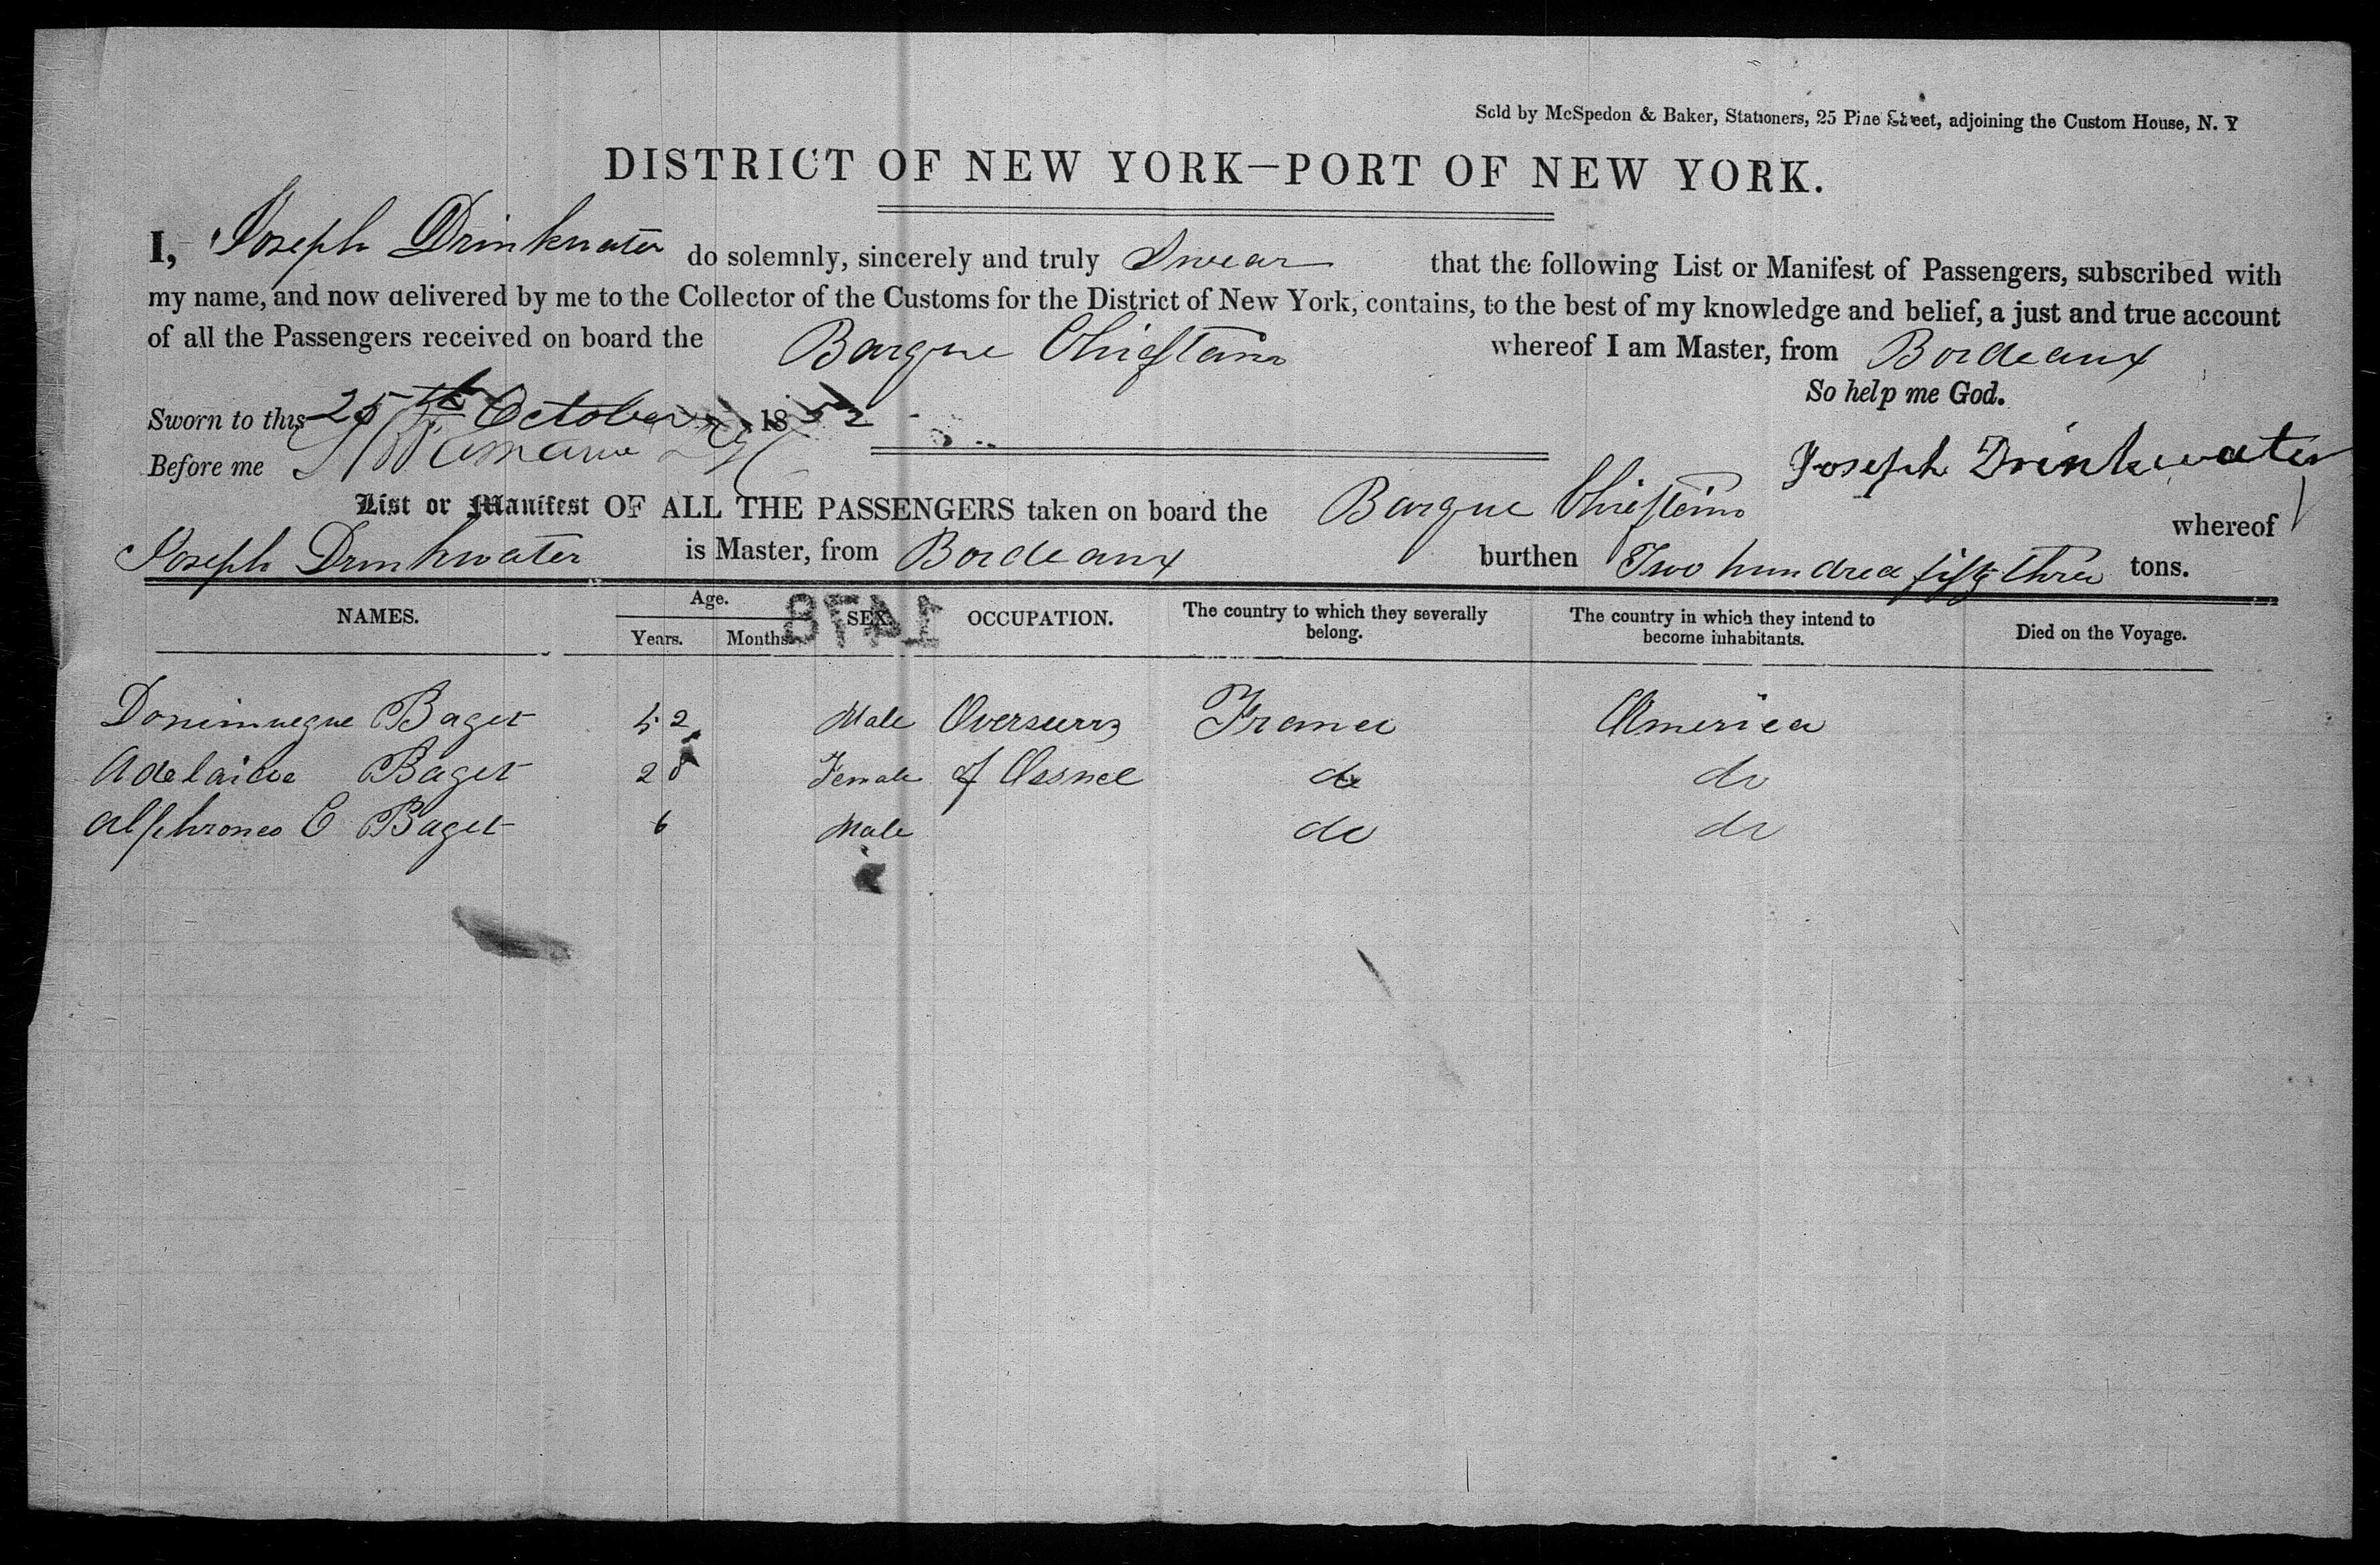 Sold by McSpedon & Baker, Stationers, 25 Pine Street, adjoining the Custom House, N. Y
DISTRICT OF NEW YORK—PORT OF NEW YORK.
I, Joseph Drinkwater do solemnly, sincerely and truly Swear that the following List or Manifest of Passengers, subscribed with
my name, and now delivered by me to the Collector of the Customs for the District of New York, contains, to the best of my knowledge and belief, a just and true account
of all the Passengers received on board the Barque Chieftain whereof I am Master, from Bordeaux
So help me God.
Sworn to this 25th October 1852
Before me
Joseph Drinkwater
List or Manifest OF ALL THE PASSENGERS taken on board the Barque Chieftain whereof
Joseph Drinkwater is Master, from Bordeaux burthen Two hundred fifty three tons.
NAMES. Age. Years. Months. SEX. OCCUPATION. The country to which they severally belong. The country in which they intend to become inhabitants. Died on the Voyage.
Baget 52 Male France America
Adelaide Baget 28 Female of do do
E Baget 6 Male do do